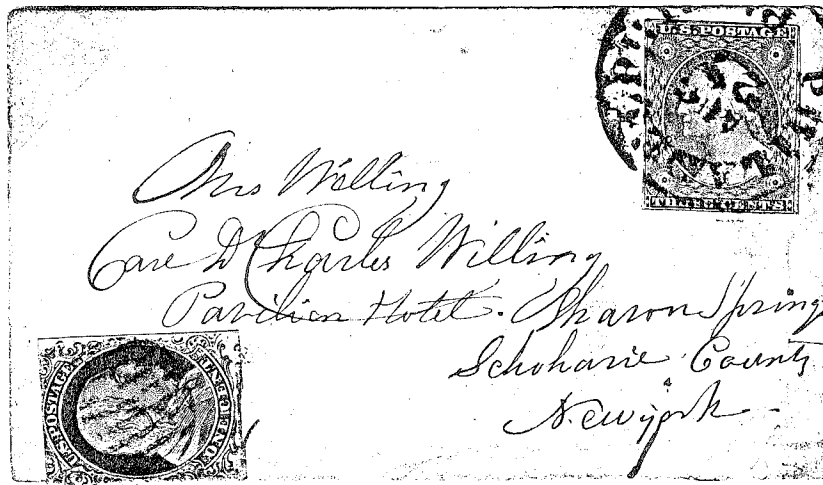 U.S. POSTAGE
THREE CENTS
Mrs Willing
Care Dr Charles Willing
Pavilion Hotel. Sharon Springs
Schoharie County
New York
U.S. POSTAGE
ONE CENT